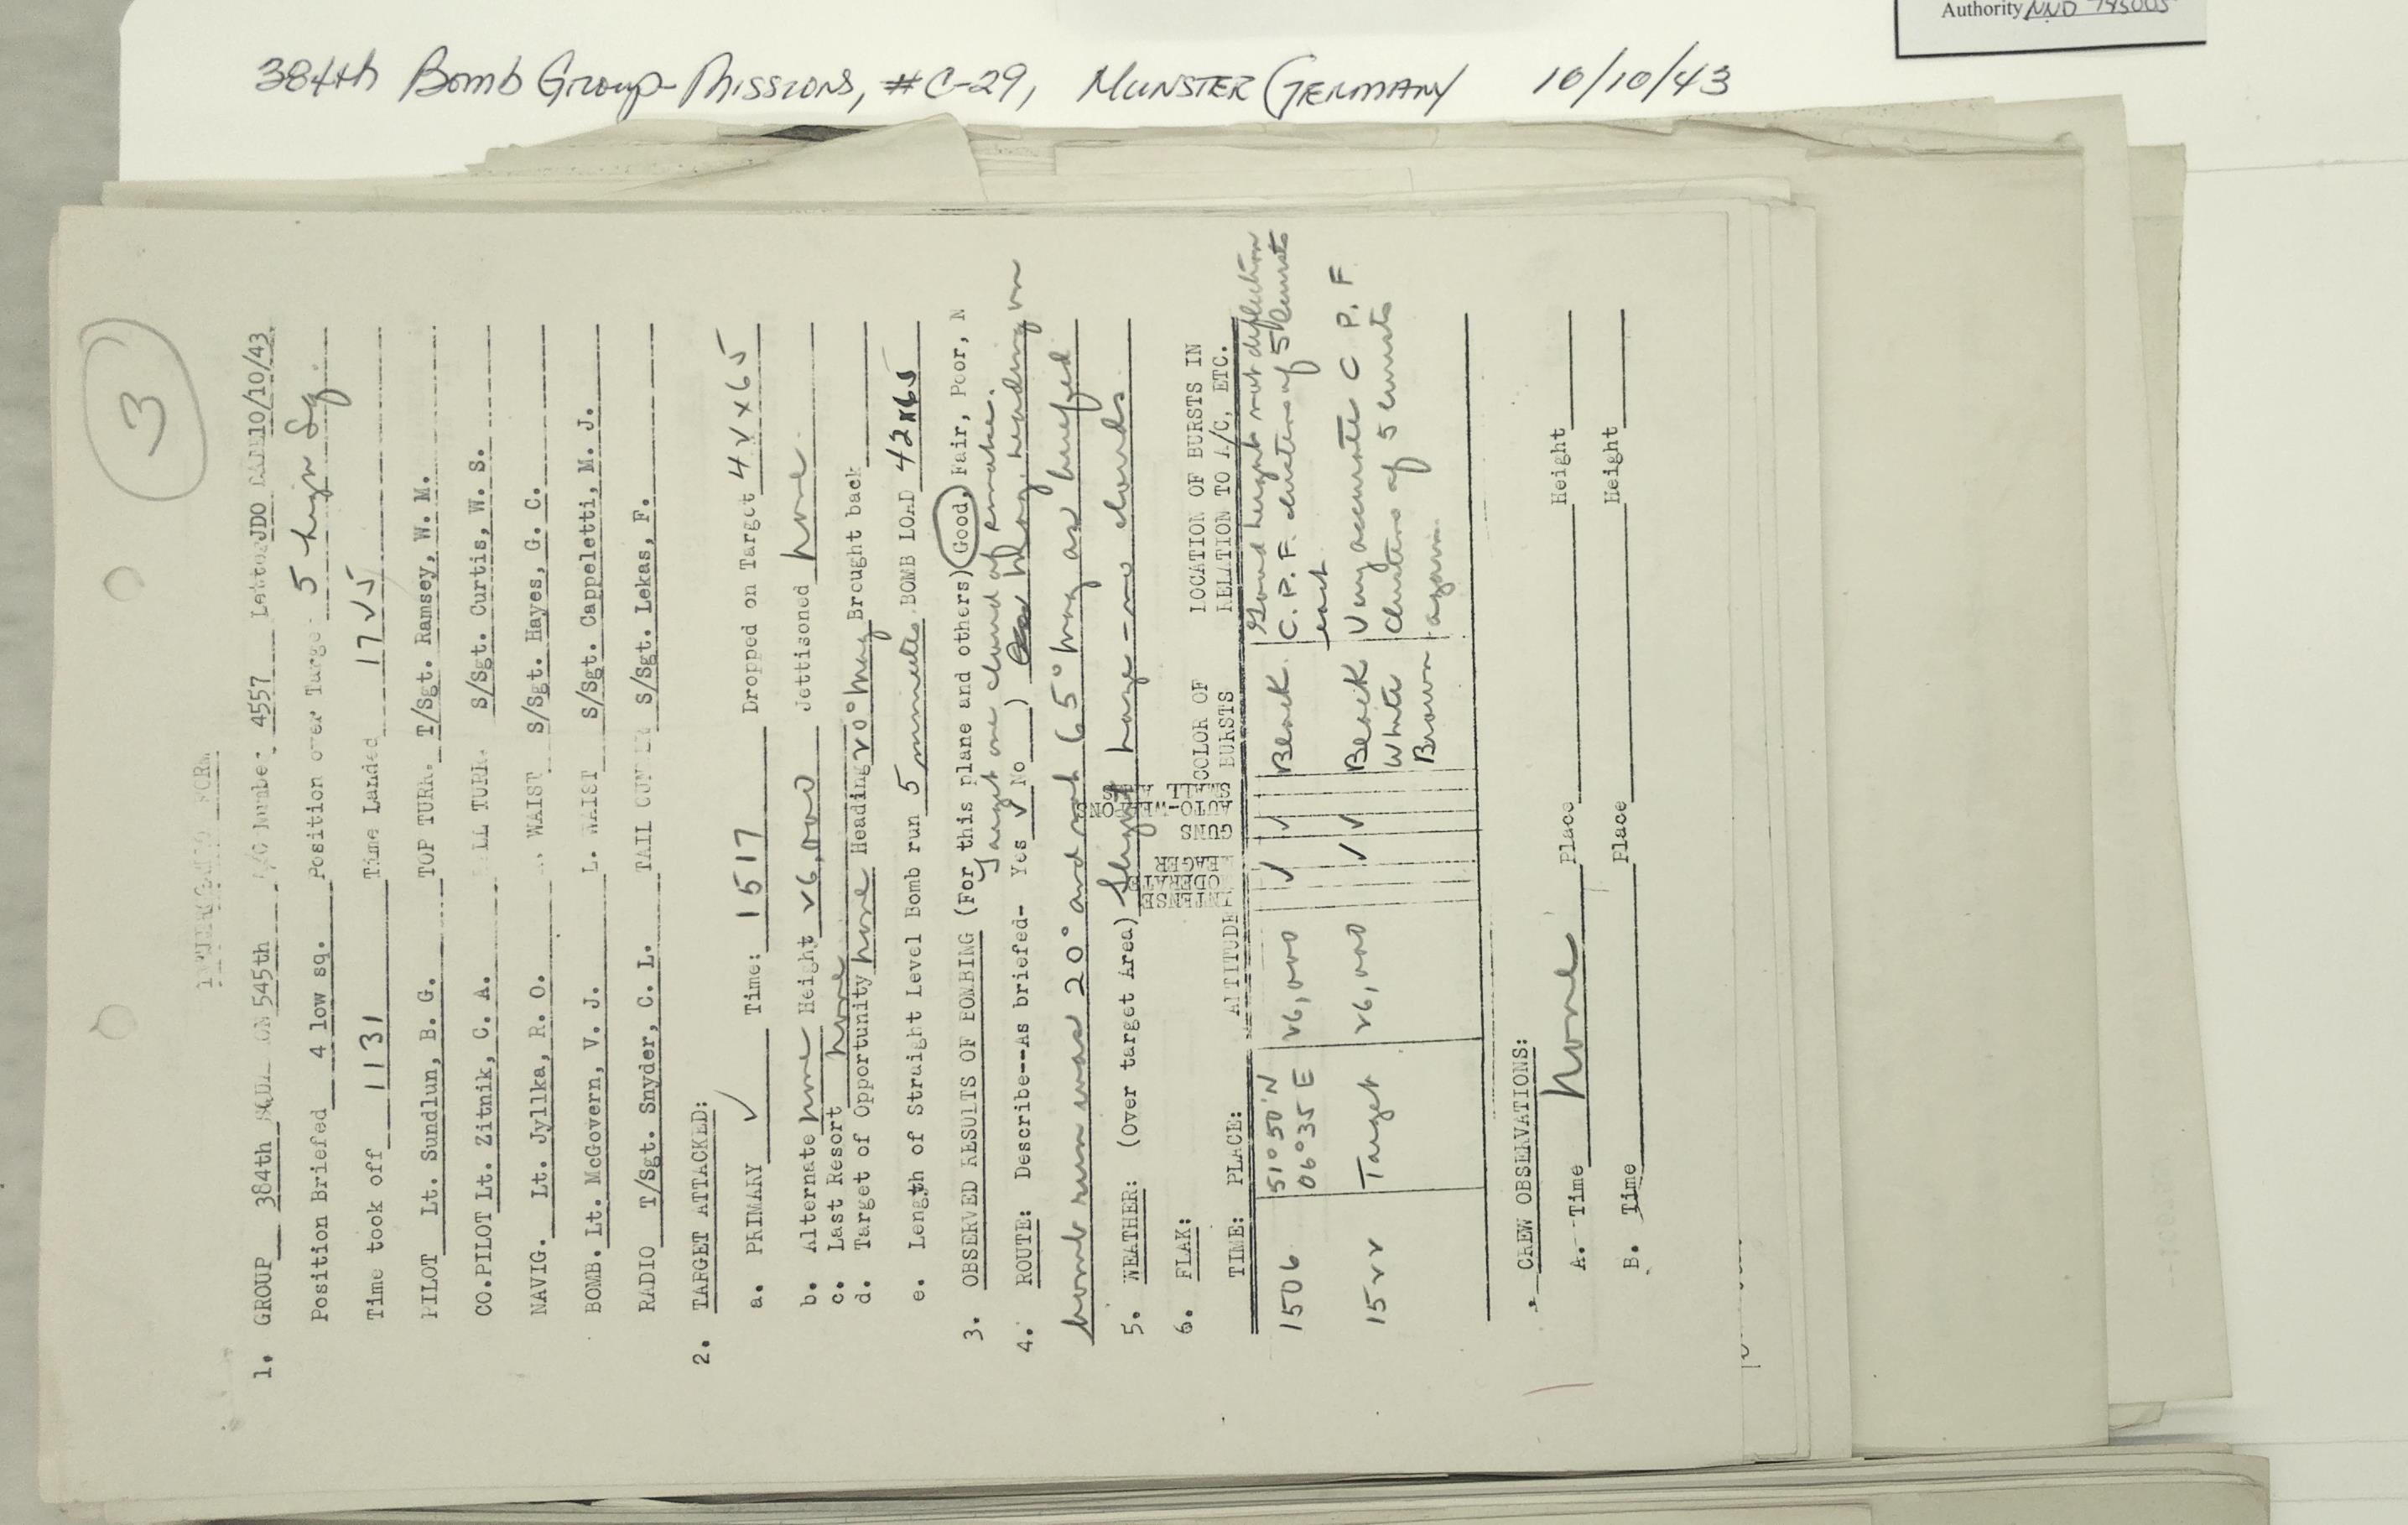 Authority NND 745005
384th Bomb Group-Missions, #C-29, MUNSTER GERMANY 10/10/43
3
FORM
1. GROUP 384th 545th A/C Number 4557 Letter JDO 10/10/43
Position Briefed 4 low sq. Position over Target 5 high Sq.
Time took off 1131 Time Landed 17v5
PILOT Lt. Sundlun, B. G. TOP TURR. T/Sgt. Ramsey, W. M.
CO.PILOT Lt. Zitnik, C. A. LL TURR. S/Sgt. Curtis, W. S.
NAVIG. Lt. Jyllka, R. O. WAIST S/Sgt. Hayes, G. C.
BOMB. Lt. McGovern, V. J. L. WAIST S/Sgt. Cappeletti, M. J.
RADIO T/Sgt. Snyder, C. L. TAIL GUNNER S/Sgt. Lekas, F.
2. TARGET ATTACKED:
a. PRIMARY ✓ Time: 1517 Dropped on Target 4v x 65
b. Alternate none Height v6,000 Jettisoned none
c. Last Resort none
d. Target of Opportunity none Heading v0° mag Brought back
e. Length of Straight Level Bomb run 5 minutes BOMB LOAD 42x65
3. OBSERVED RESULTS OF BOMBING (For this plane and others) Good, Fair, Poor, N
Target one cloud of smoke.
4. ROUTE: Describe--As briefed- Yes ✓ No ) mag heading on
bomb run was 20° and not 65° mag as briefed
5. WEATHER: (Over target Area) Slight haze - no clouds
6. FLAK:
TIME: PLACE: ALTITUDE INTENSE MODERATE MEAGER GUNS AUTO-WEAPONS SMALL COLOR OF BURSTS LOCATION OF BURSTS IN RELATION TO A/C, ETC.
1506 51°50'N 06°35E v6,000 ✓ ✓ Black Good height not deflection
C.P.F. clusters of 5 bursts
each
15vv Target v6,000 ✓ ✓ Black Very accurate C P. F
White Clusters of 5 bursts
Brown again
CREW OBSERVATIONS:
A. Time None Place Height
B. Time Place Height